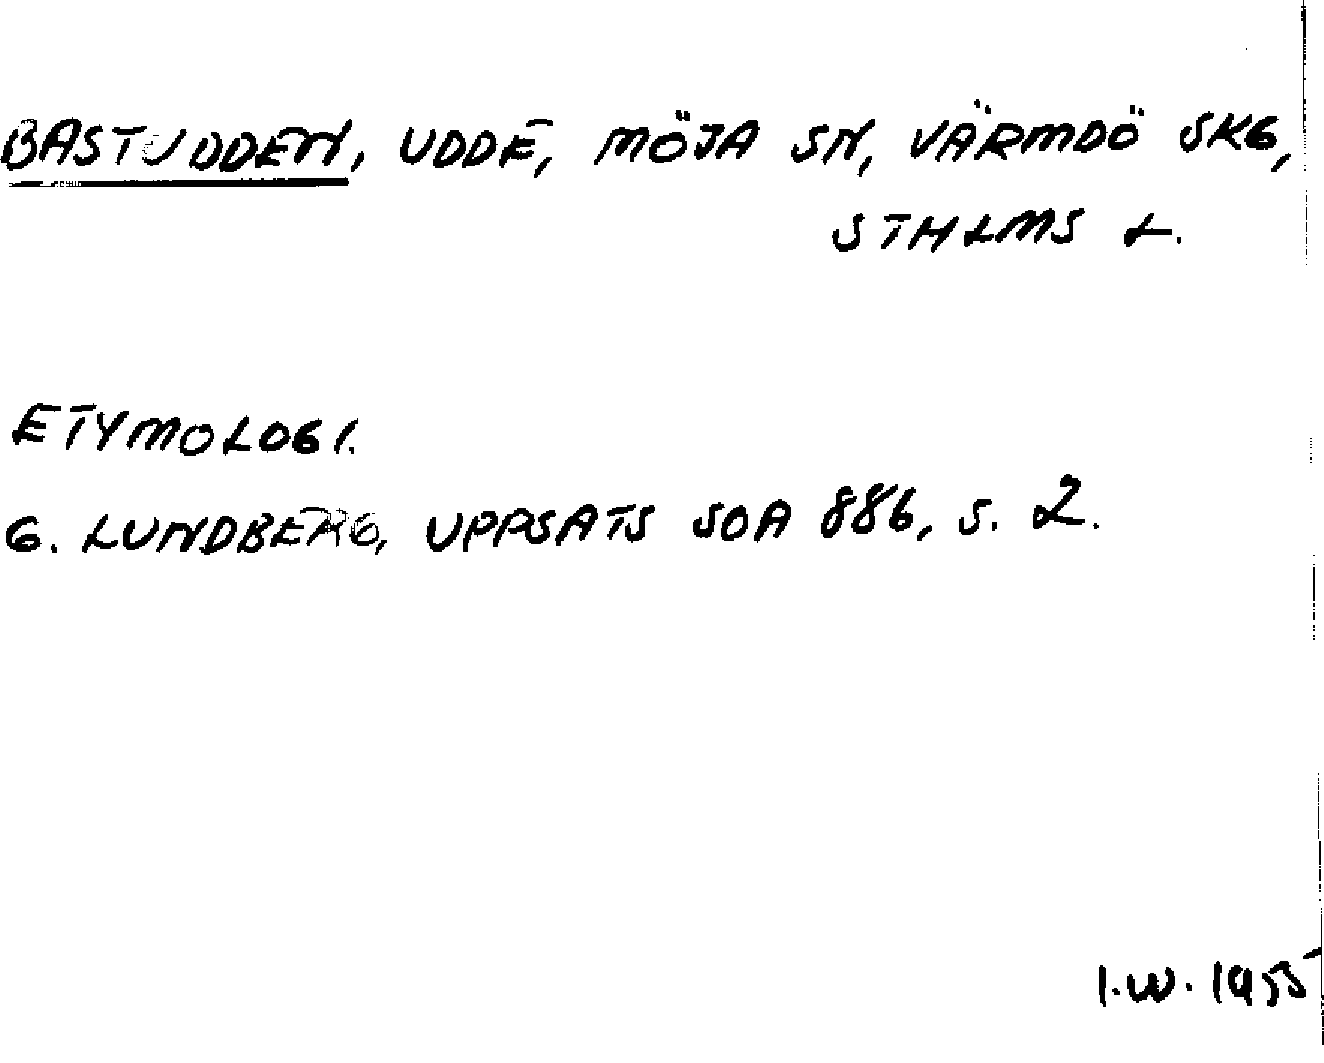 BASTUDDEN, UDDE, MÖJA SN, VÄRMDÖ SKG,
STHLMS L.
ETYMOLOGI.
G. LUNDBERG, UPPSATS SOA 886, S. 2.
I.W. 1955